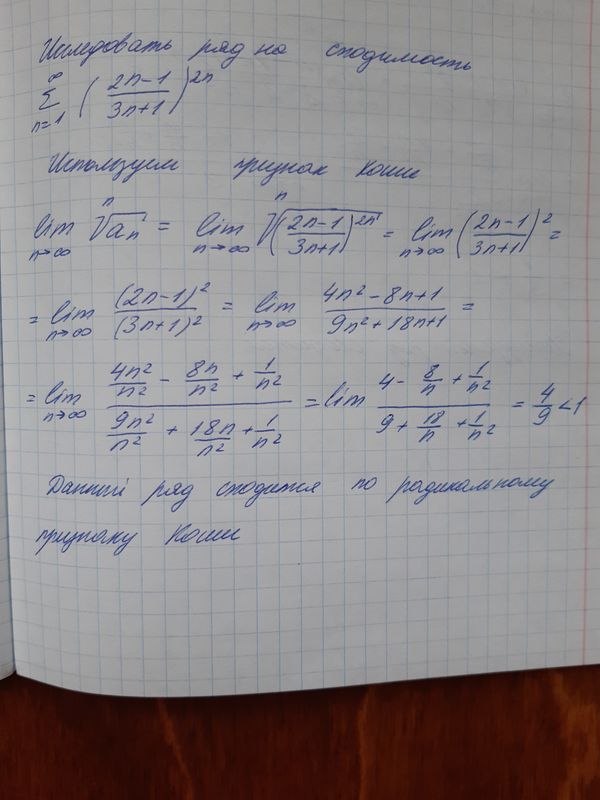 Исследовать ряд на сходимость
∞ ∑ n=1 ( (2n-1)/(3n+1) )^2n
Используем признак Коши
lim n→∞ ⁿ√aₙ = lim n→∞ ⁿ√((2n-1)/(3n+1))^2n = lim n→∞ ((2n-1)/(3n+1))^2 =
= lim n→∞ (2n-1)^2/(3n+1)^2 = lim n→∞ (4n²-8n+1)/(9n²+18n+1) =
= lim n→∞ (4n²/n² - 8n/n² + 1/n²)/(9n²/n² + 18n/n² + 1/n²) = lim (4 - 8/n + 1/n²)/(9 + 18/n + 1/n²) = 4/9 < 1
Данный ряд сходится по радикальному
признаку Коши